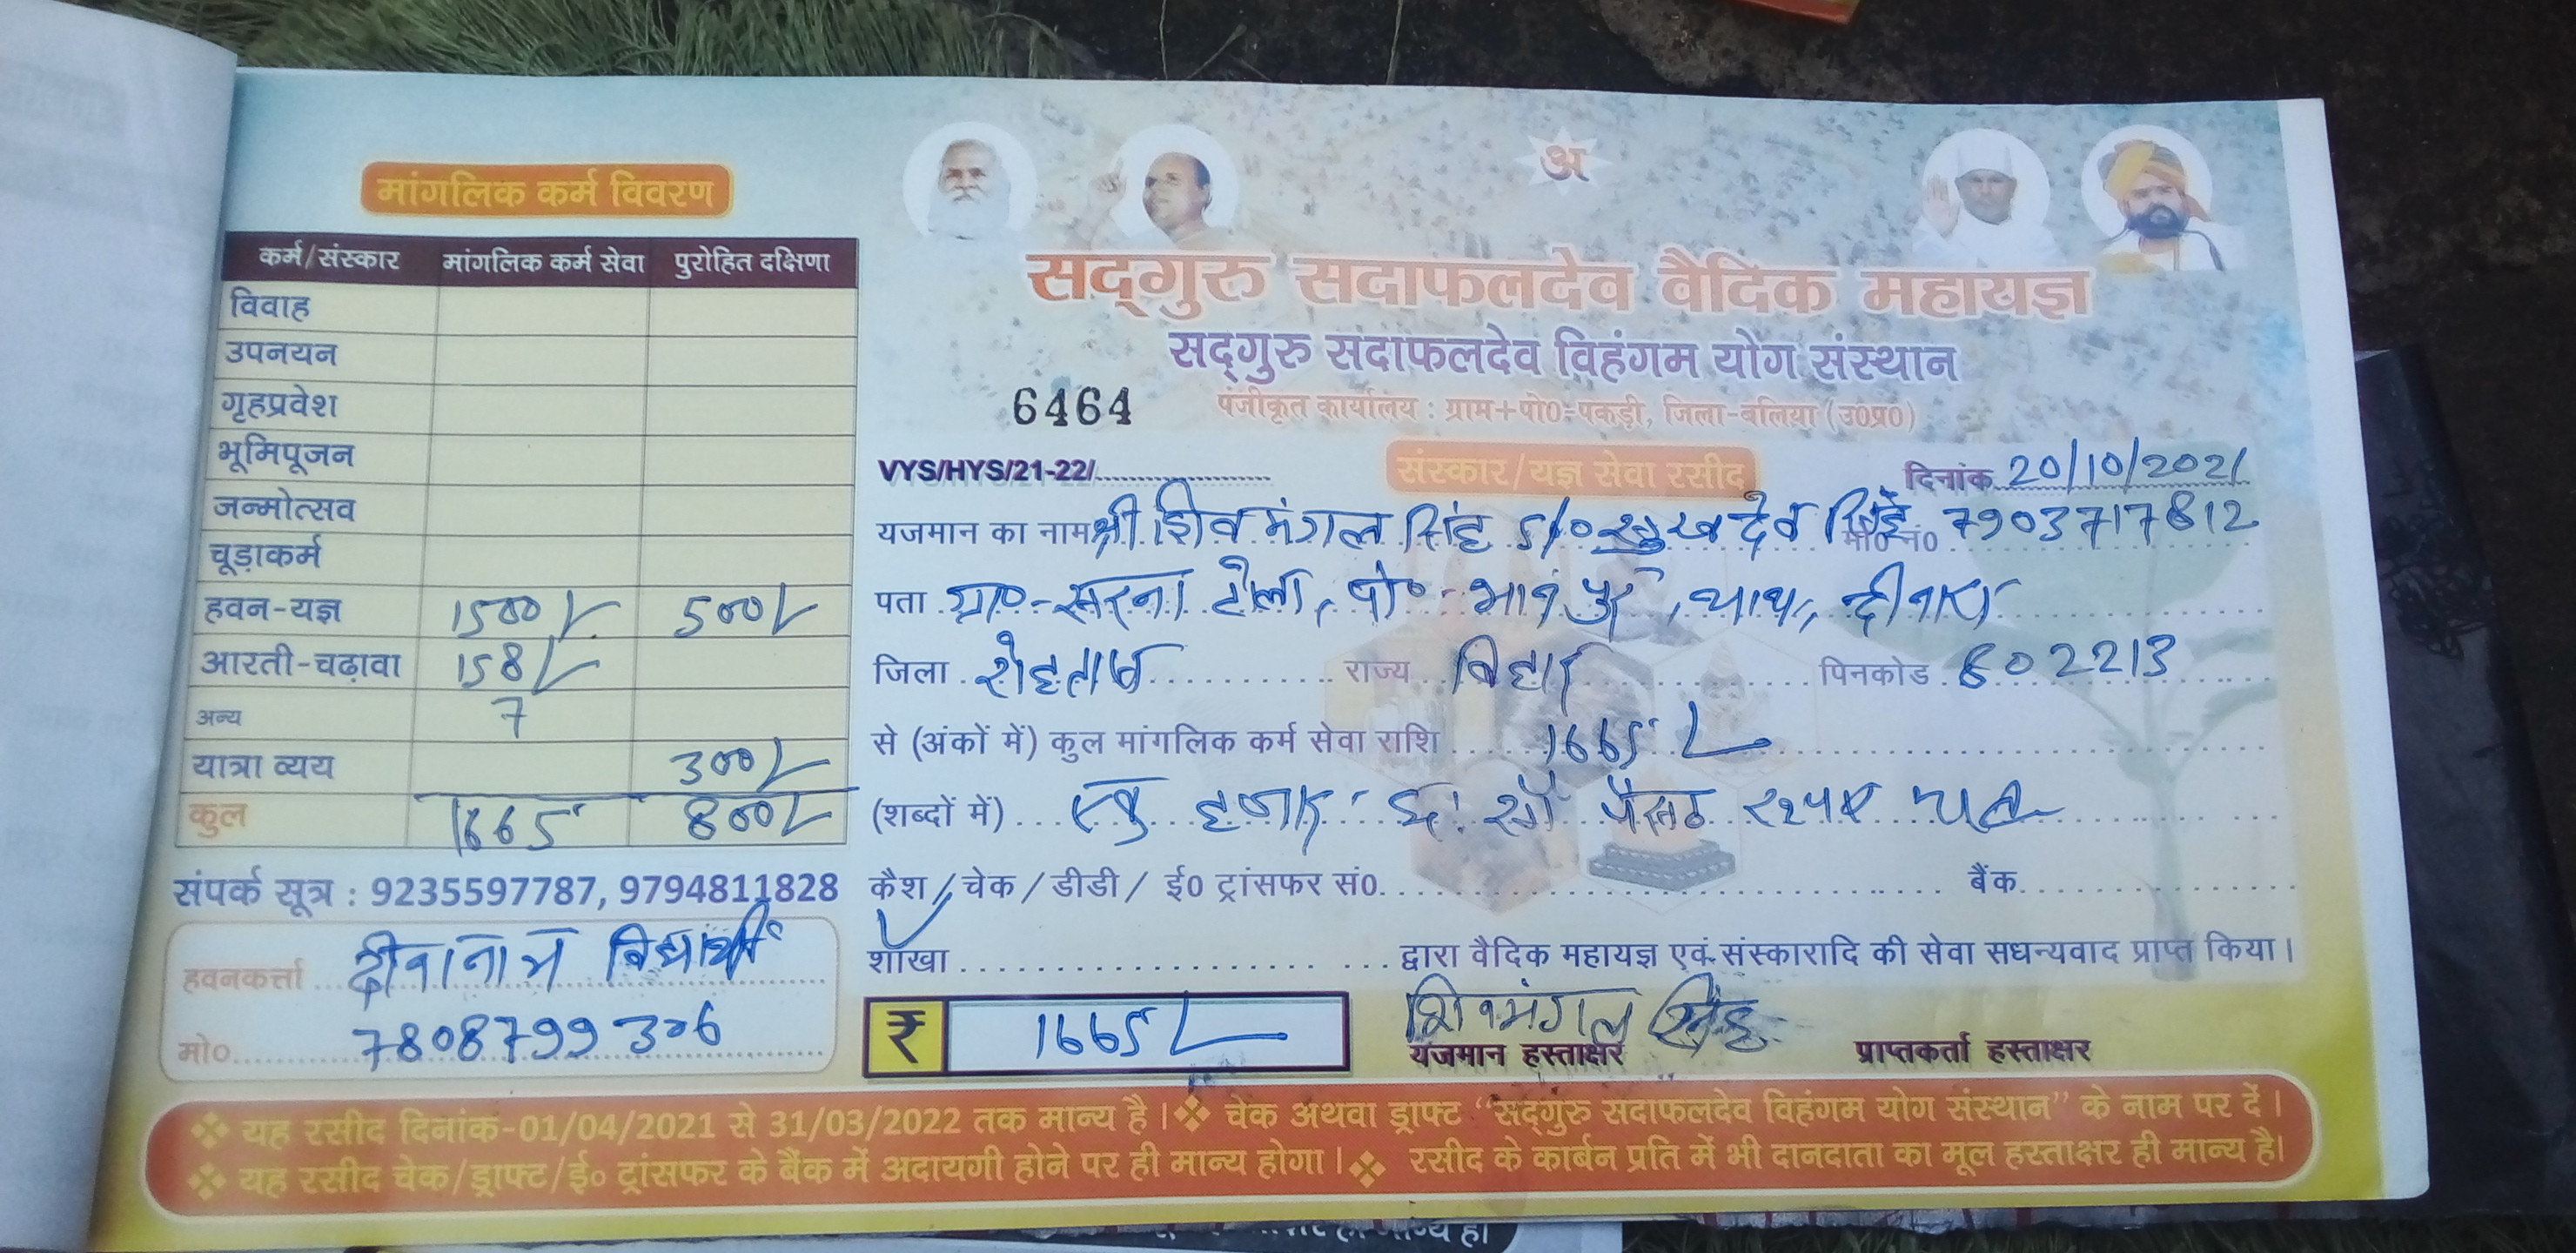 मांगलिक कर्म विवरण
कर्म/संस्कार मांगलिक कर्म सेवा पुरोहित दक्षिणा
विवाह
उपनयन
गृहप्रवेश
भूमिपूजन
जन्मोत्सव
चूड़ाकर्म
हवन-यज्ञ 1500/- 500/-
आरती-चढ़ावा 158/-
अन्य 7
यात्रा व्यय 300/-
कुल 1665 800/-
संपर्क सूत्र : 9235597787, 9794811828
हवनकर्त्ता दीनानाथ विद्यार्थी
मो० 7808799306
अ
सद्गुरु सदाफलदेव वैदिक महायज्ञ
सद्गुरु सदाफलदेव विहंगम योग संस्थान
6464 पंजीकृत कार्यालय : ग्राम+पो0-पकड़ी, जिला-बलिया (उ0प्र0)
VYS/HYS/21-22/ संस्कार/यज्ञ सेवा रसीद दिनांक 20/10/2021
यजमान का नाम श्री शिव मंगल सिंह S/० सुखदेव सिंह मो0 नं0 7903717812
पता ग्रा०-सरना टोला, पो०- , थाना, दीनारा
जिला रोहतास राज्य बिहार पिनकोड 802213
से (अंकों में) कुल मांगलिक कर्म सेवा राशि 1665/-
(शब्दों में) एक हजार छः सौ पैंसठ रुपए मात्र
कैश/चेक/डीडी/ ई0 ट्रांसफर सं0. बैंक
शाखा द्वारा वैदिक महायज्ञ एवं संस्कारादि की सेवा सधन्यवाद प्राप्त किया।
₹ 1665/- शिवमंगल सिंह
यजमान हस्ताक्षर प्राप्तकर्ता हस्ताक्षर
❖ यह रसीद दिनांक-01/04/2021 से 31/03/2022 तक मान्य है। ❖ चेक अथवा ड्राफ्ट "सद्गुरु सदाफलदेव विहंगम योग संस्थान" के नाम पर दें।
❖ यह रसीद चेक/ड्राफ्ट/ई० ट्रांसफर के बैंक में अदायगी होने पर ही मान्य होगा। ❖ रसीद के कार्बन प्रति में भी दानदाता का मूल हस्ताक्षर ही मान्य है।